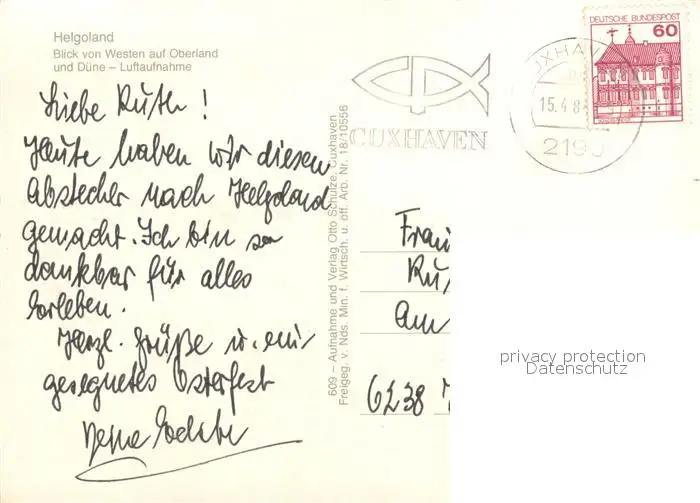 Helgoland
Blick von Westen auf Oberland
und Düne – Luftaufnahme
Liebe Ruth !
Heute haben wir diesen
Abstecher nach Helgoland
gemacht. Ich bin so
dankbar für alles
Erleben.
Herzl. Grüße u. ein
gesegnetes Osterfest
609 – Aufnahme und Verlag Otto Schulze, Cuxhaven
Freigeg. v. Nds. Min. f. Wirtsch. u. öff. Arb. Nr. 18/10556
CUXHAVEN
CUXHAV
15.4.8
2190
DEUTSCHE BUNDESPOST
60
Frau
Ru
Am
6238
privacy protection
Datenschutz